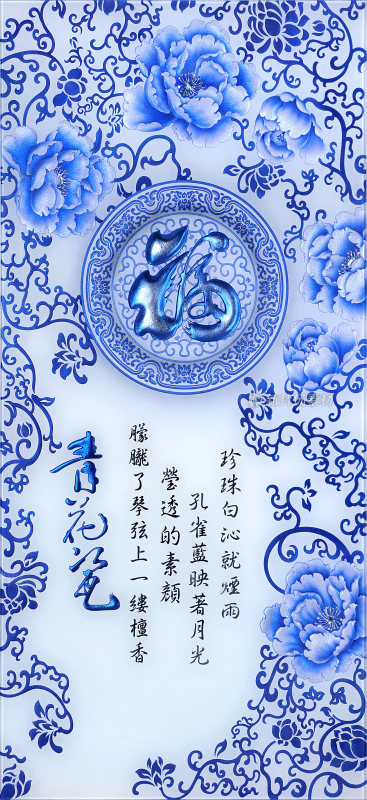 福
珍珠白沁就煙雨
孔雀藍映著月光
瑩透的素顏
朦朧了琴弦上一縷檀香
青花瓷